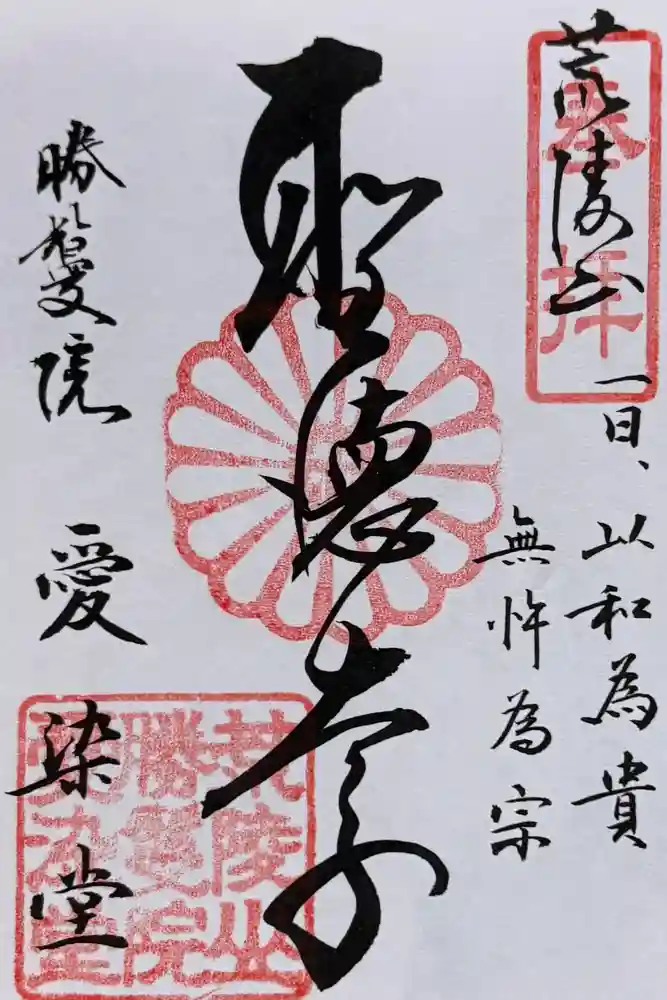 奉拝
荒陵山
一曰、以和為貴
無忤為宗
聖徳太子
勝鬘院 愛染堂
荒陵山
勝鬘院
愛染堂